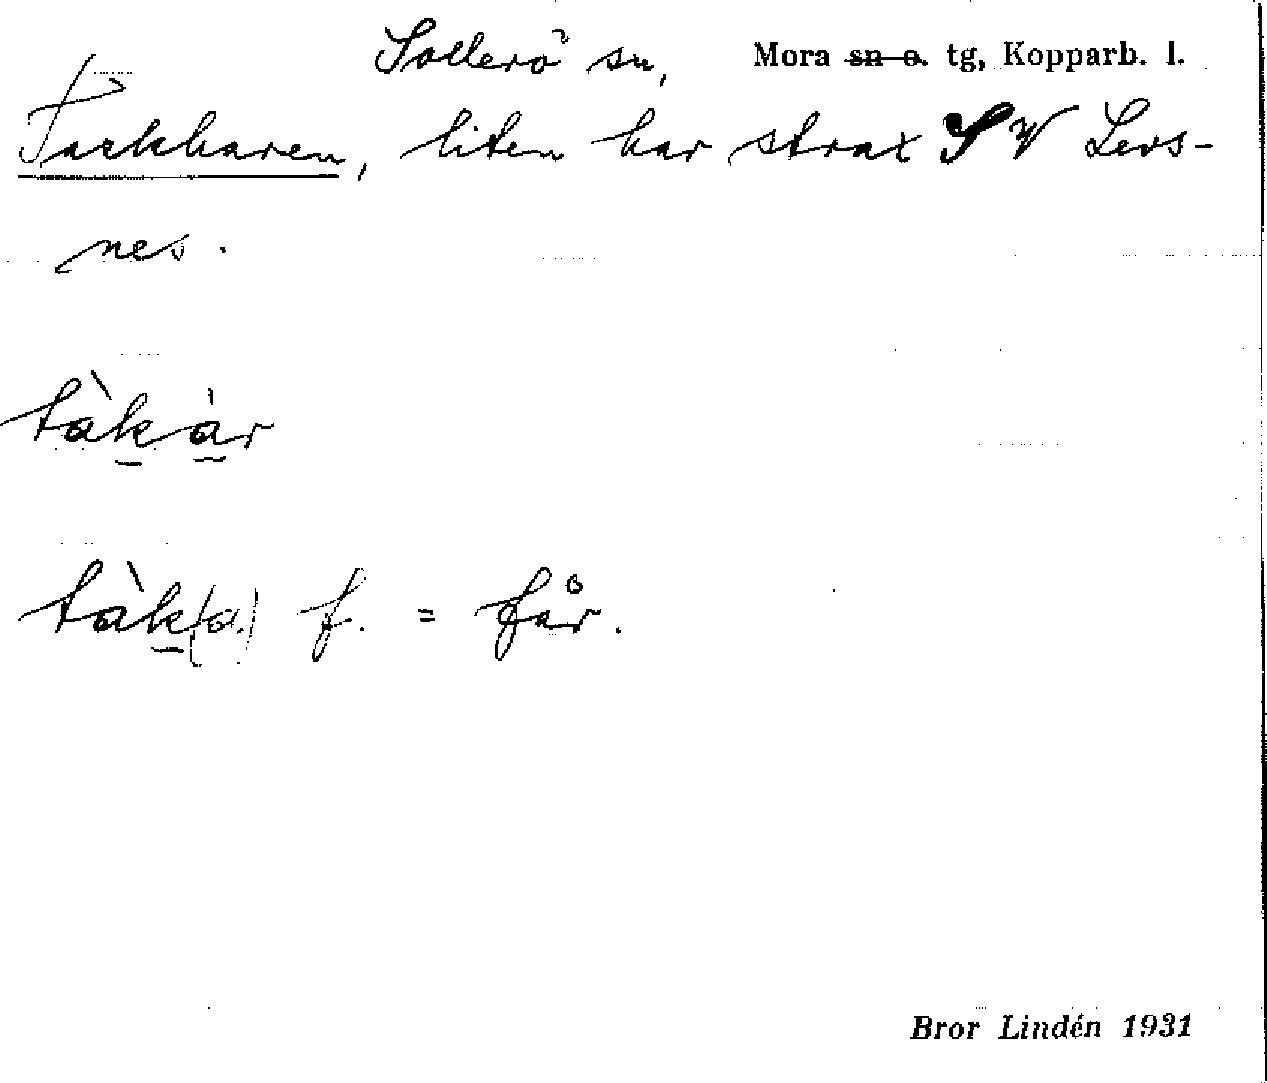 Sollerö sn, Mora sn o. tg, Kopparb. l.
Tackkaren, liten kar strax SV Levs-
nes.
tàkàr
tàk(a) f. = får.
Bror Lindén 1931